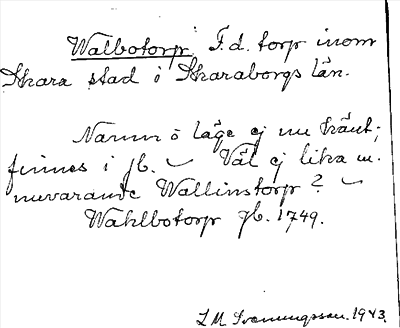 Walbotorp. F.d. torp inom
Skara stad i Skaraborgs län.
Namn o läge ej nu känt;
finnes i jb. ✓ Väl ej lika m.
nuvarande Wallinstorp? ✓
Wahlbotorp jb. 1749.
L M Svenungsson. 1943.